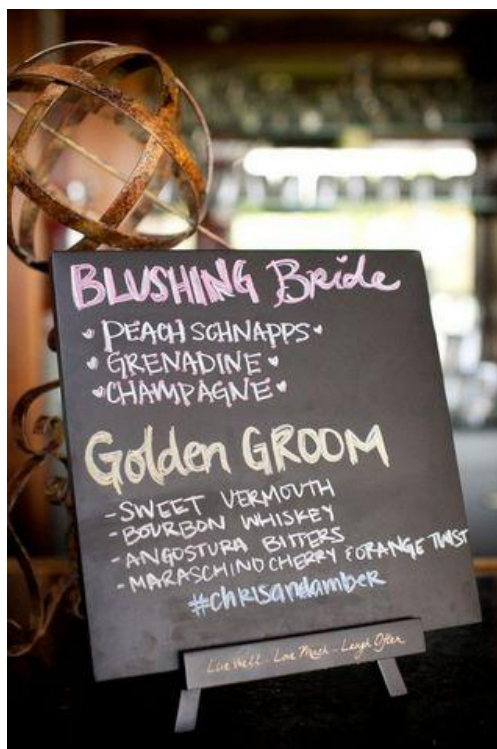 BLUSHING Bride
PEACH SCHNAPPS
GRENADINE
CHAMPAGNE
Golden GROOM
-SWEET VERMOUTH
-BOURBON WHISKEY
-ANGOSTURA BITTERS
-MARASCHINO CHERRY & ORANGE TWIST
#chrisandamber
Live Well - Love Much - Laugh Often